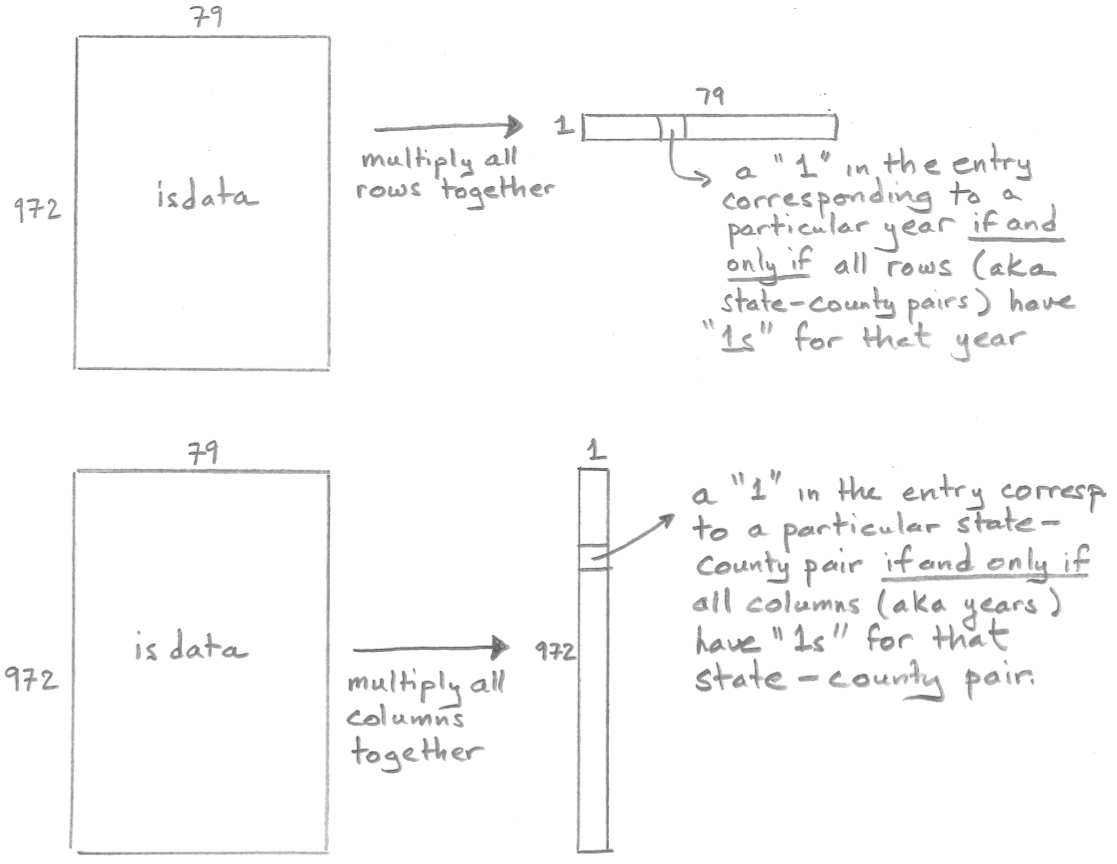 79
972
isdata
multiply all
rows together
1
79
a "1" in the entry
corresponding to a
particular year if and
only if all rows (aka
state-county pairs) have
"1s" for that year
79
972
is data
multiply all
columns
together
1
972
a "1" in the entry corresp.
to a particular state-
county pair if and only if
all columns (aka years)
have "1s" for that
state-county pair.